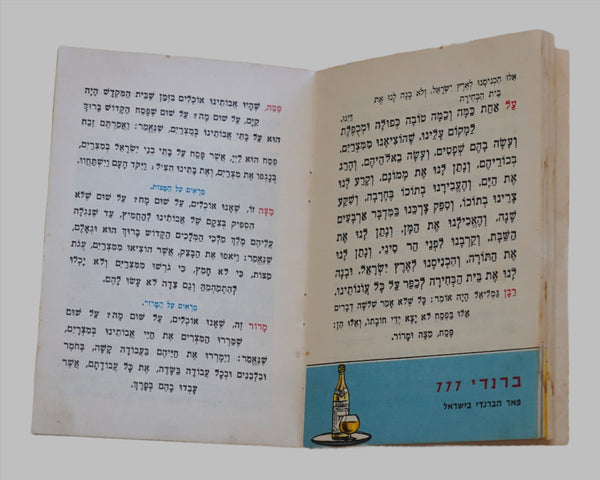 אלו הכניסנו לארץ ישראל, ולא בנה לנו את
בית הבחירה
דינו.
על אחת כמה וכמה טובה כפולה ומכפלת
למקום עלינו, שהוציאנו ממצרים,
ועשה בהם שפטים, ועשה באלהיהם, והרג
בכוריהם, ונתן לנו את ממונם, וקרע לנו
את הים, והעבירנו בתוכו בחרבה, ושקע
צרינו בתוכו, וספק צרכנו במדבר ארבעים
שנה, והאכילנו את המן, ונתן לנו את
השבת, וקרבנו לפני הר סיני, ונתן לנו
את התורה, והכניסנו לארץ ישראל, ובנה
לנו את בית הבחירה לכפר על כל עונותינו.
רבן גמליאל היה אומר: כל שלא אמר שלשה דברים
אלו בפסח לא יצא ידי חובתו, ואלו הן:
פסח, מצה ומרור.
ברנדי 777
פאר הברנדי בישראל
פסח, שהיו אבותינו אוכלים בזמן שבית המקדש היה
קים, על שום מה? על שום שפסח הקדוש ברוך
הוא על בתי אבותינו במצרים, שנאמר: ואמרתם זבח
פסח הוא ליי, אשר פסח על בתי בני ישראל במצרים,
בנגפו את מצרים, ואת בתינו הציל; ויקד העם וישתחוו.
מראים על המצות.
מצה זו, שאנו אוכלים, על שום מה? על שום שלא
הספיק בצקם של אבותינו להחמיץ, עד שנגלה
עליהם מלך מלכי המלכים הקדוש ברוך הוא וגאלם,
שנאמר: ויאפו את הבצק, אשר הוציאו ממצרים, עגת
מצות, כי לא חמץ, כי גרשו ממצרים ולא יכלו
להתמהמה וגם צדה לא עשו להם.
מראים על המרור.
מרור זה, שאנו אוכלים, על שום מה? על שום
שמררו המצרים את חיי אבותינו במצרים,
שנאמר: וימררו את חייהם בעבודה קשה, בחמר
ובלבנים ובכל עבודה בשדה, את כל עבודתם, אשר
עבדו בהם בפרך.